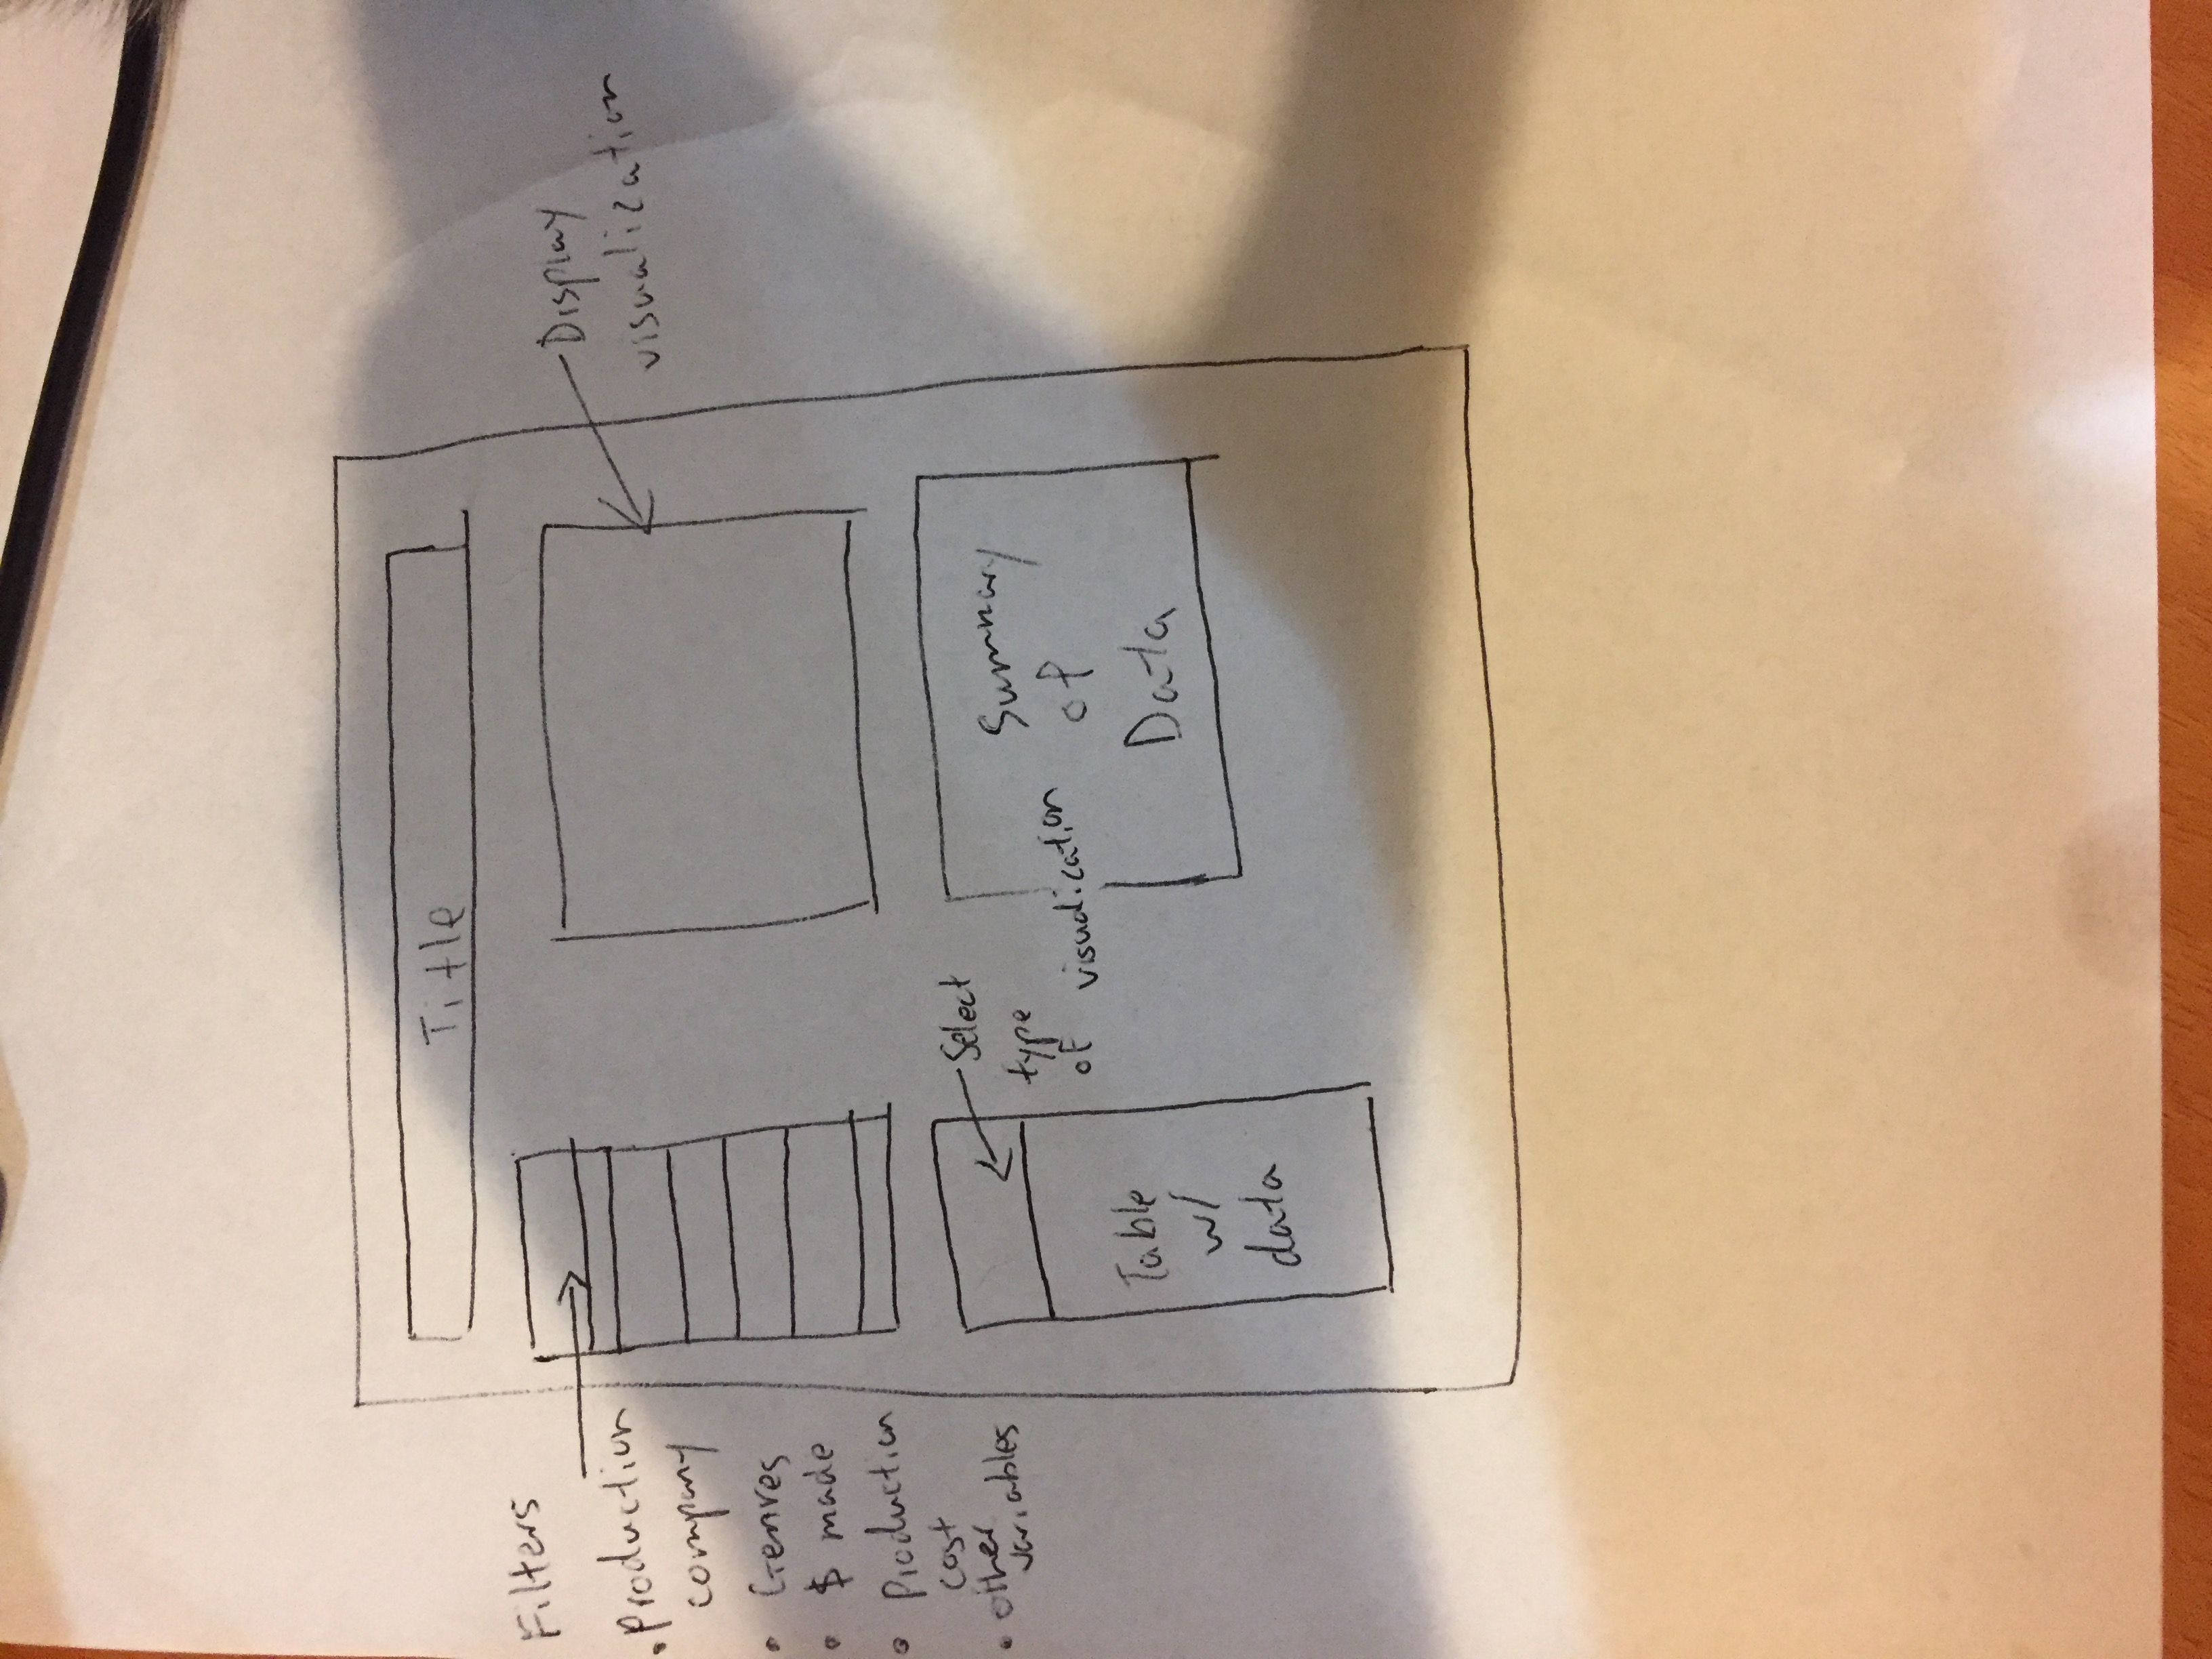 Title
Filters
• Production
company
• Genres
• $ made
• Production
cost
• other
variables
Display
visualization
Select
type
of visudication
Table
w/
data
Summary
of
Data